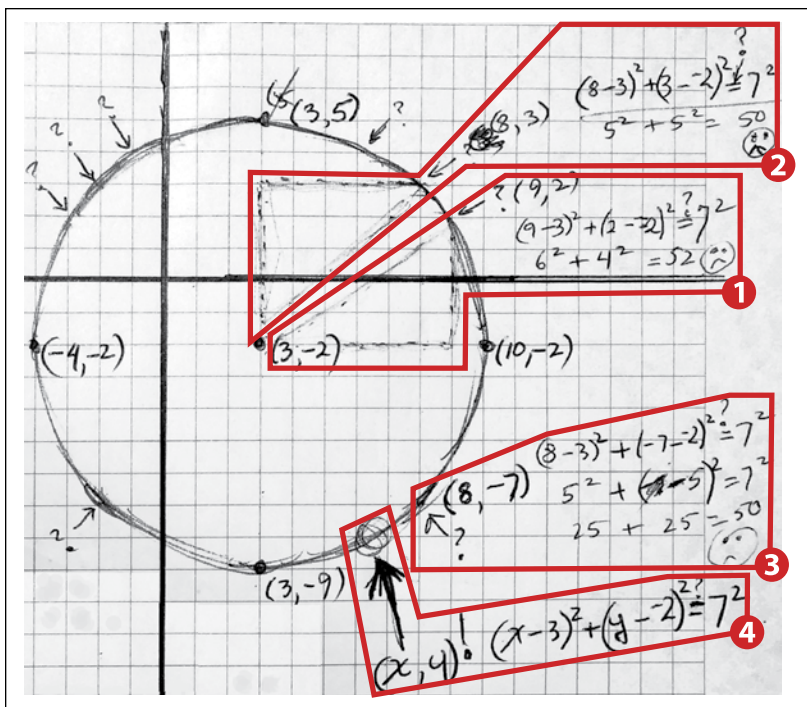 ?
(8-3)² + (3 - ⁻2)² ≟ 7²
5² + 5² = 50
2
(3, 5)
?
(8, 3)
?
?
?
?
?
(9, 2)
(9-3)² + (2 - ⁻2)² ≟ 7²
6² + 4² = 52
1
(-4, -2)
(3, -2)
(10, -2)
(8-3)² + (-7 - ⁻2)² ≟ 7²
(8, -7)
5² + (-5)² = 7²
25 + 25 = 50
?
?
3
(3, -9)
(x, y)!
(x-3)² + (y - ⁻2)² ≟ 7²
4